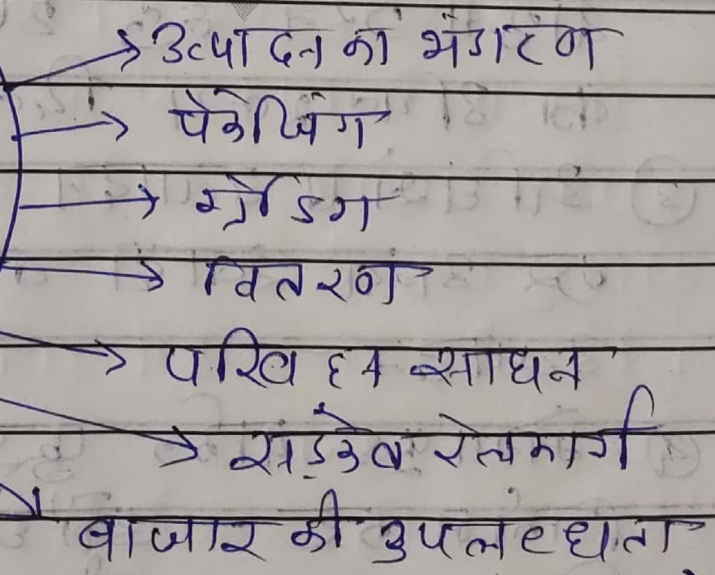 उत्पादन का भंडारण
पैकेजिंग
ग्रेडिंग
वितरण
परिवहन साधन
सड़क व रेलमार्ग
बाजार की उपलब्धता